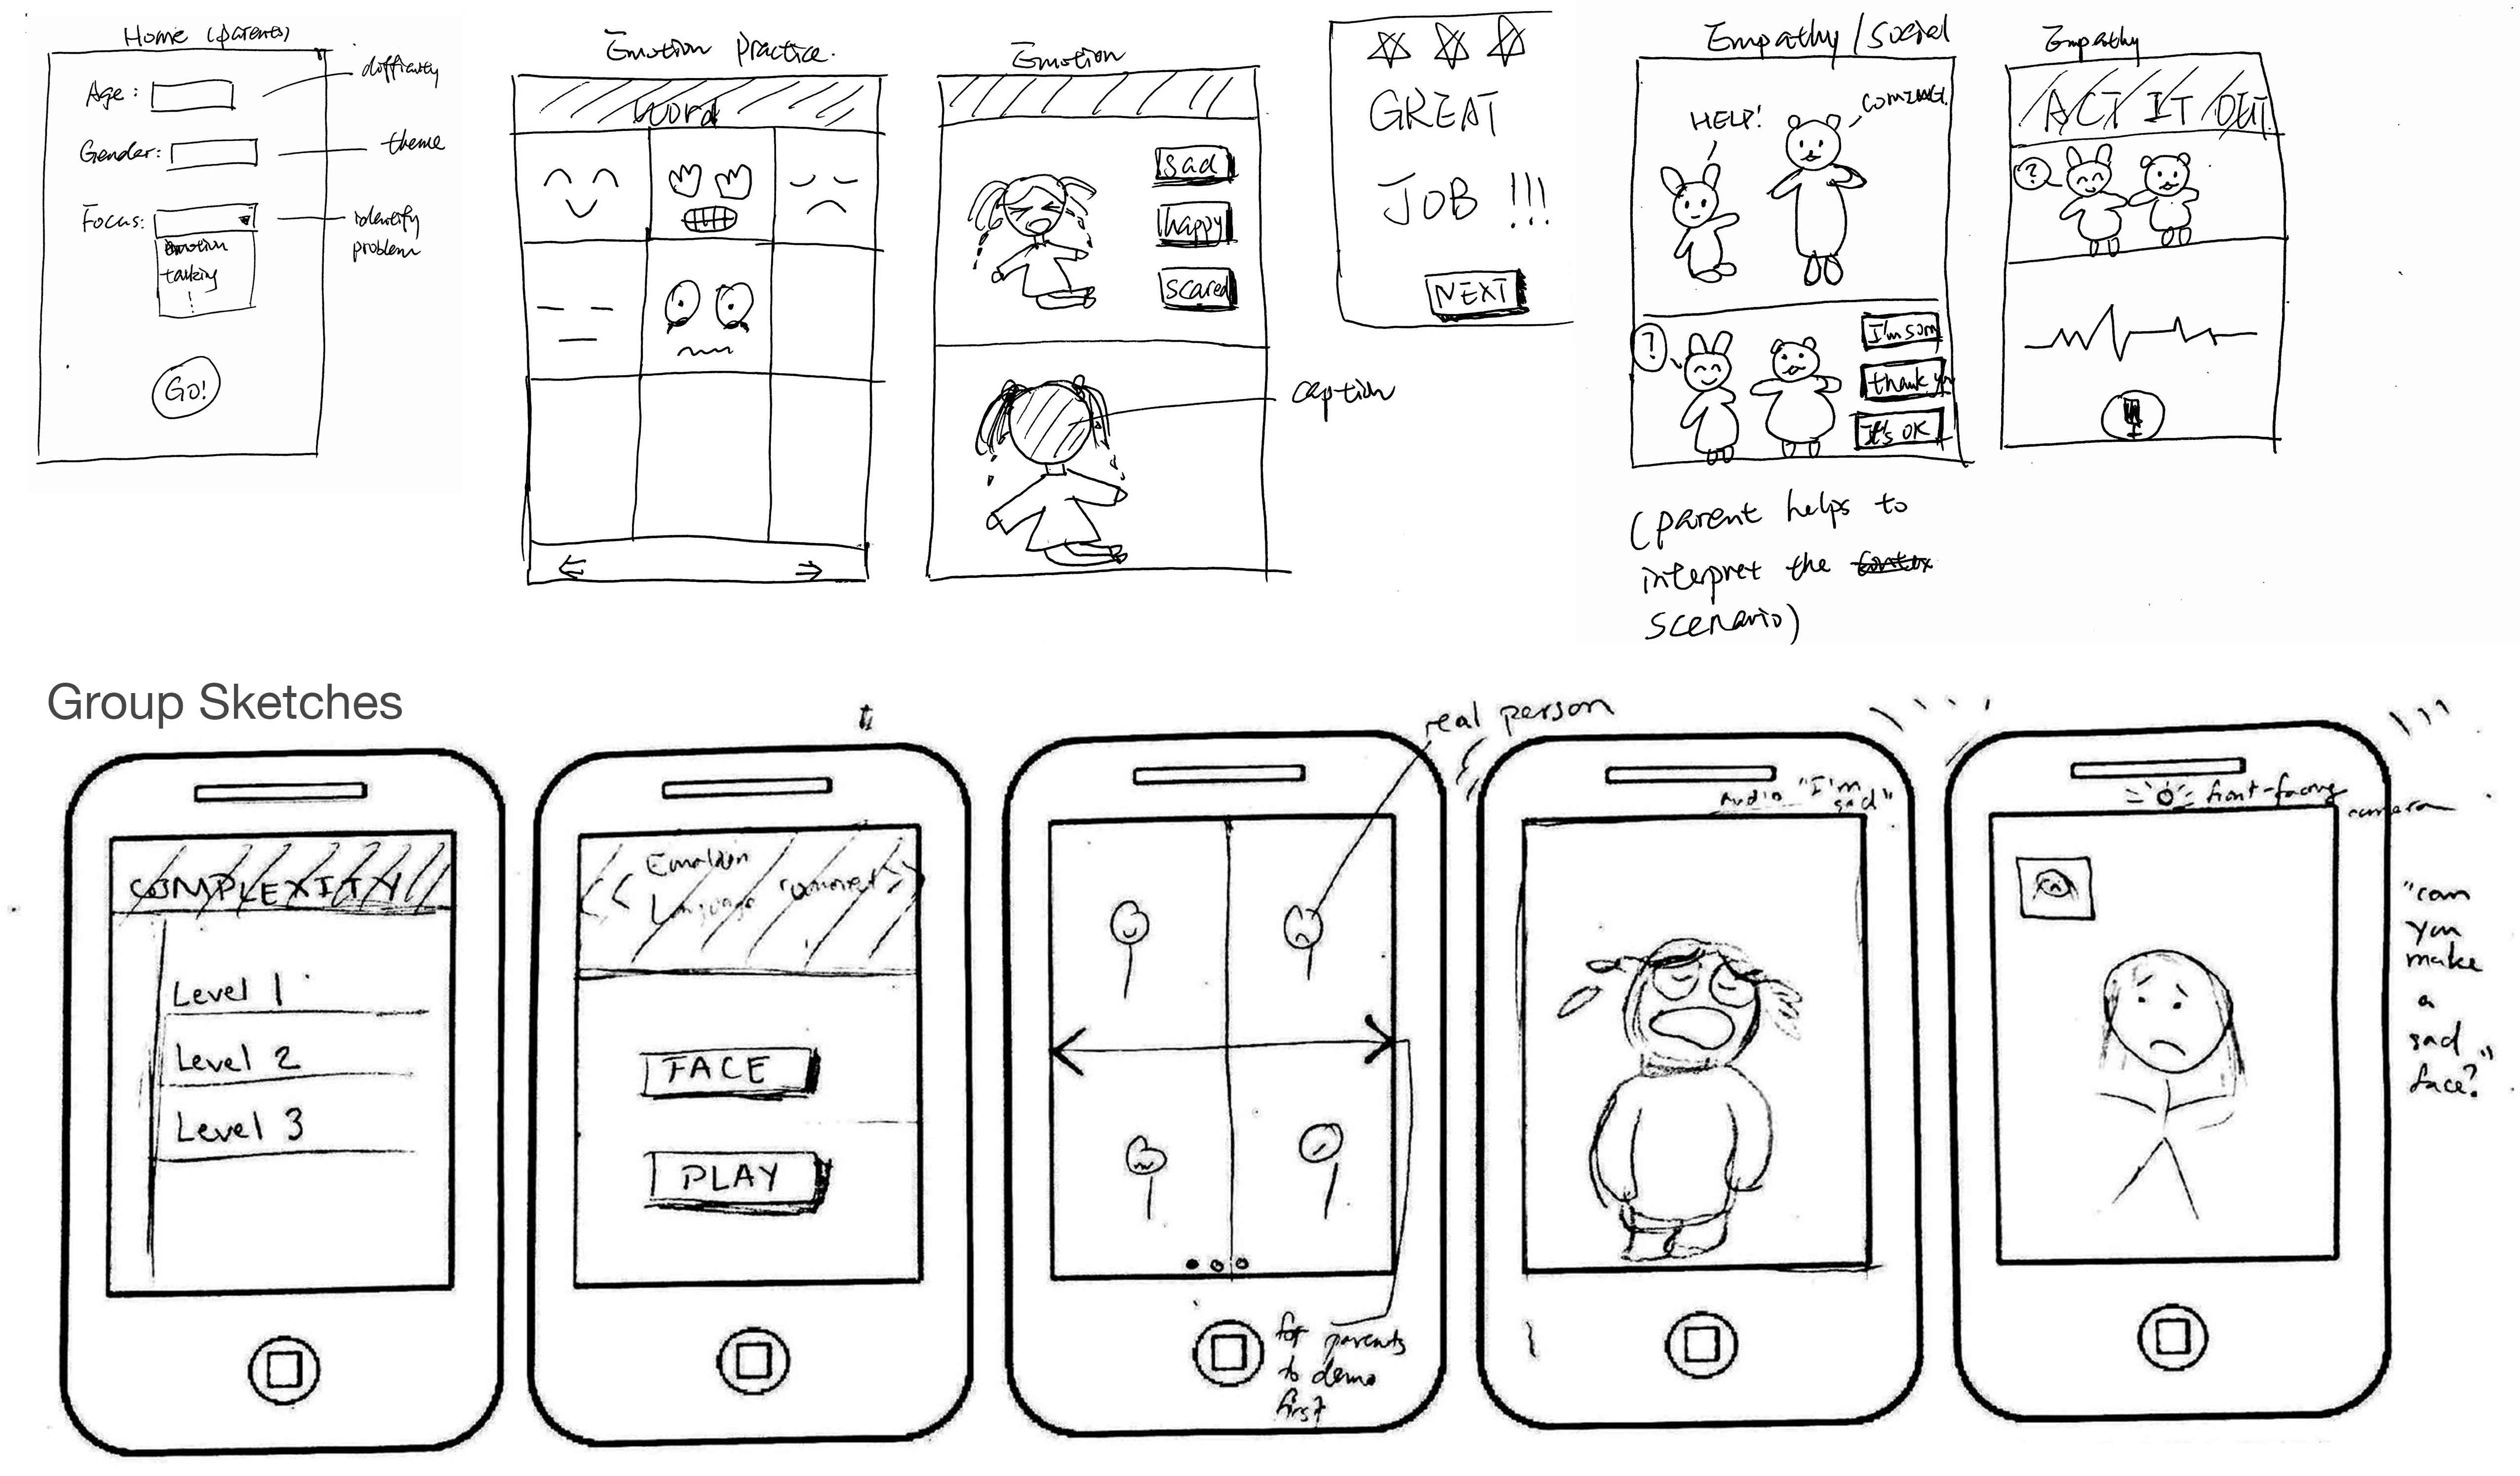 Home (parents)
Age:
difficulty
Gender:
theme
Focus:
emotion
talking
identify
problem
Go!
Emotion Practice.
Word
Emotion
sad
happy
scared
caption
GREAT
JOB !!!
NEXT
Empathy / Social
HELP!
COMING!
?
I'm sorry
thank you
It's OK
(parent helps to
interpret the
scenario)
Empathy
ACT IT OUT
?
Group Sketches
COMPLEXITY
Level 1
Level 2
Level 3
Emotion
Language
FACE
PLAY
real person
for parents
to demo
first
Audio "I'm
sad"
front-facing
camera
"can
you
make
a
sad
face?"